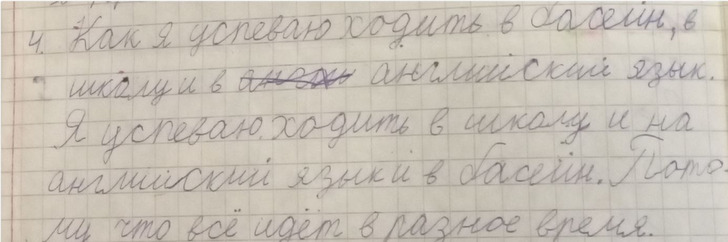 4. Как я успеваю ходить в басейн, в
школу и в английский язык.
Я успеваю ходить в школу и на
английский язык и в басейн. Пото-
му что всё идёт в разное время.